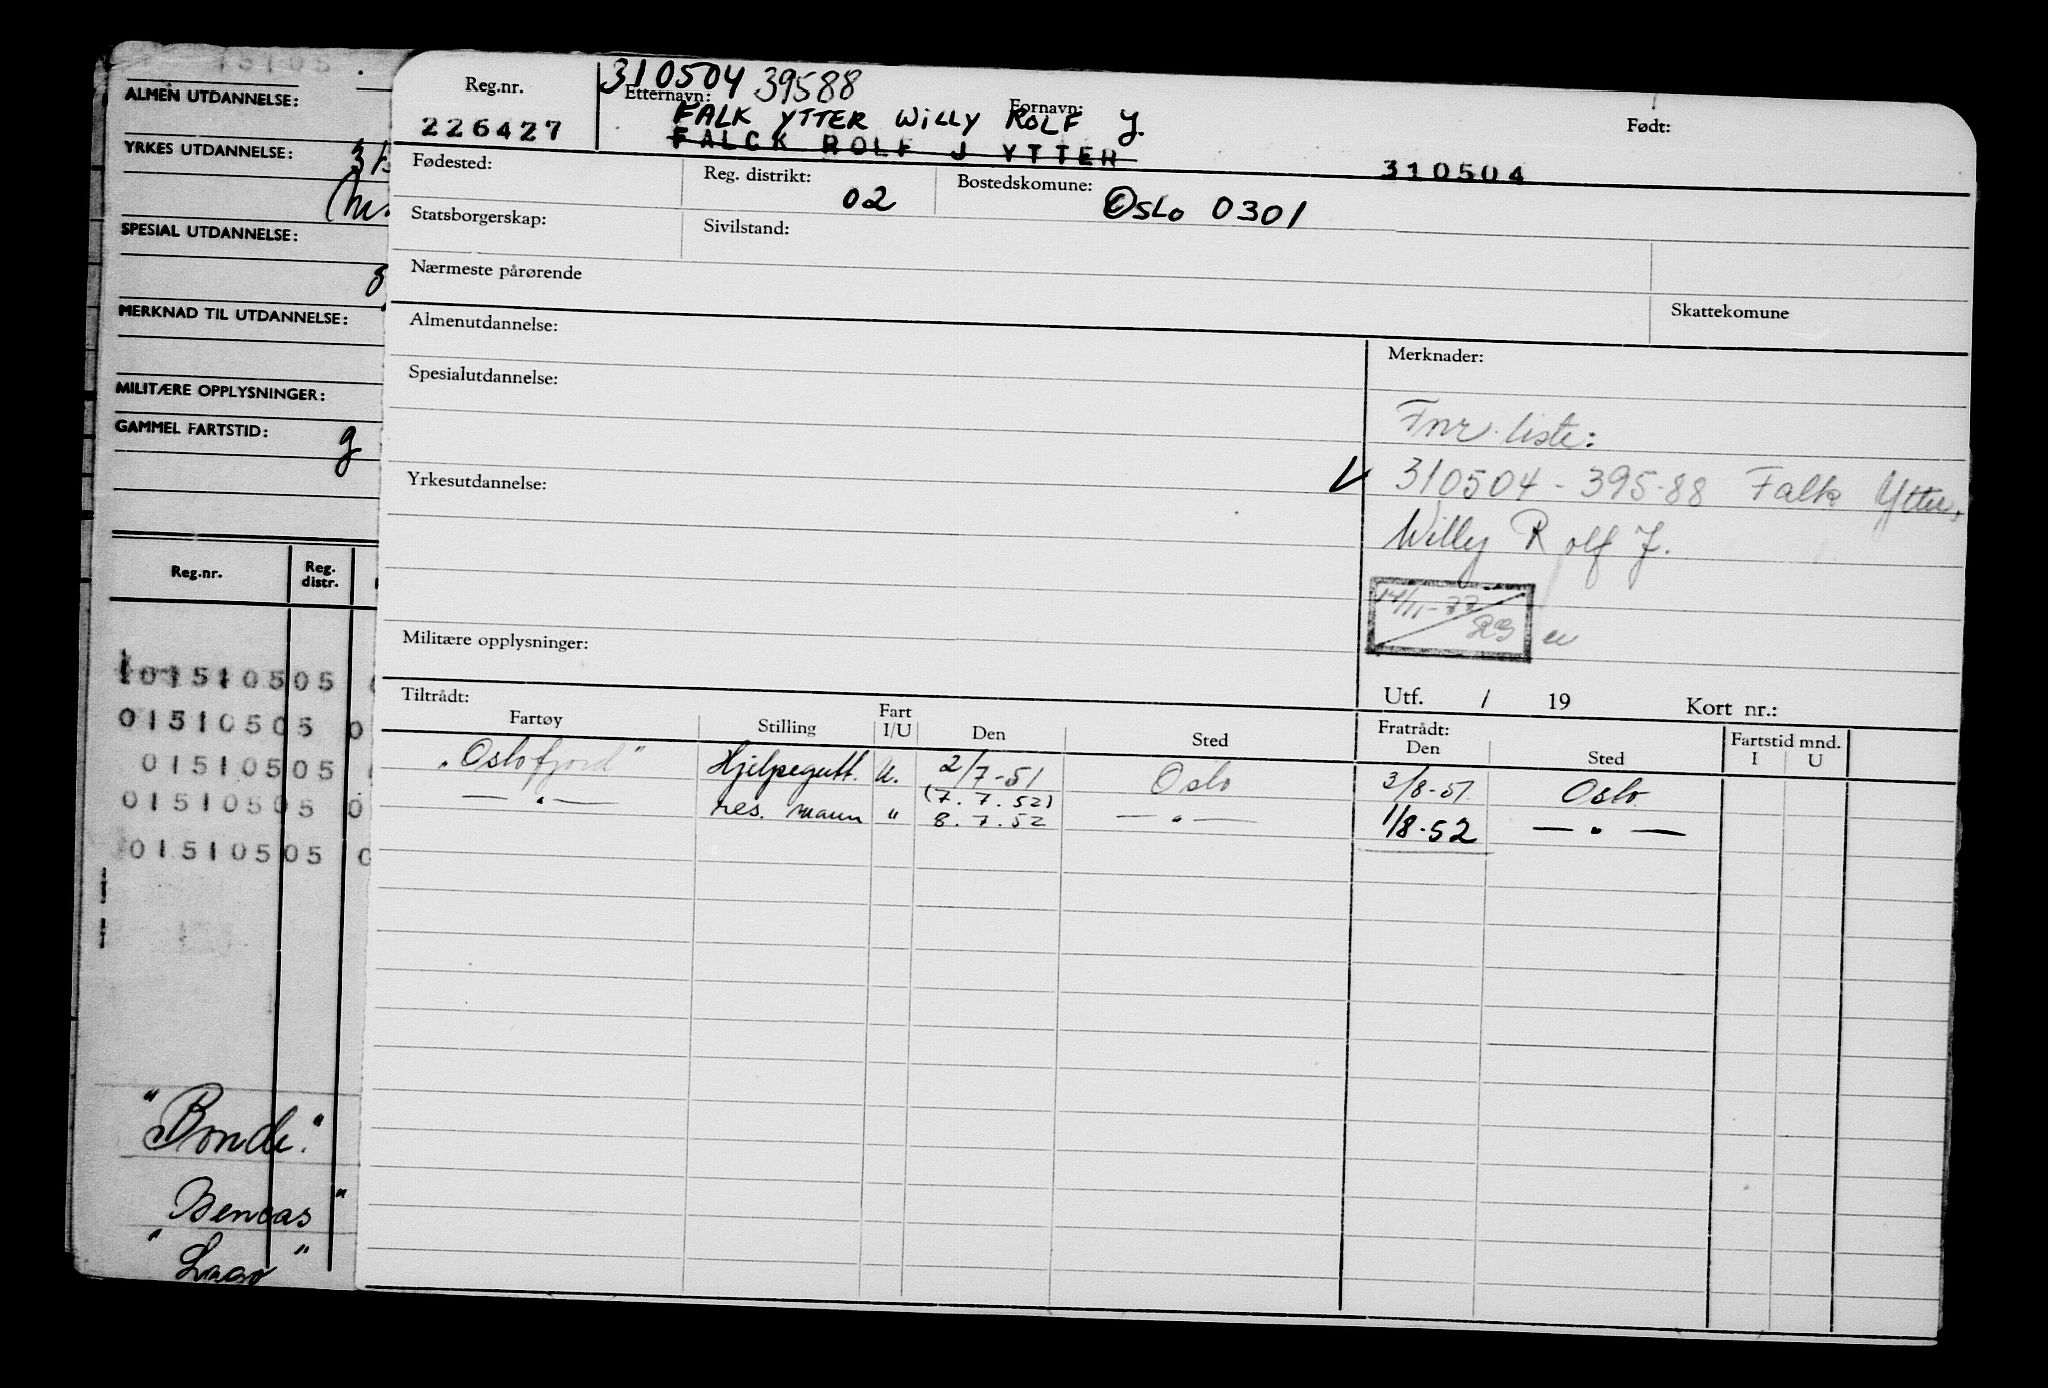 ALMEN UTDANNELSE:
YRKES UTDANNELSE:
SPESIAL UTDANNELSE:
MERKNAD TIL UTDANNELSE:
MILITÆRE OPPLYSNINGER:
GAMMEL FARTSTID:
g
Reg.nr. Reg. distr.
01510505
01510505 0
01510505
01510505 0
01510505 0
"Bonde"
Bencas"
"Lago"
Reg.nr. 310504 39588
Etternavn: Fornavn: Født:
226427 FALK YTTER WILLY ROLF J.
FALCK ROLF J YTTER 310504
Fødested: Reg. distrikt: 02 Bostedskomune: Oslo 0301
Statsborgerskap: Sivilstand:
Nærmeste pårørende
Skattekomune
Almenutdannelse: Merknader:
Spesialutdannelse:
Fnr. liste:
Yrkesutdannelse: 310504-395-88 Falk Ytter,
Willy Rolf J.
Militære opplysninger:
Utf. / 19 Kort nr.:
Tiltrådt: Fratrådt:
Fartøy Stilling Fart I/U Den Sted Den Sted Fartstid mnd. I U
"Oslofjord" Hjelpegutt. U. 2/7-51 Oslo 3/8-51 Oslo
(7.7.52)
— " — res. mann " 8.7.52 — " — 1/8-52 — " —